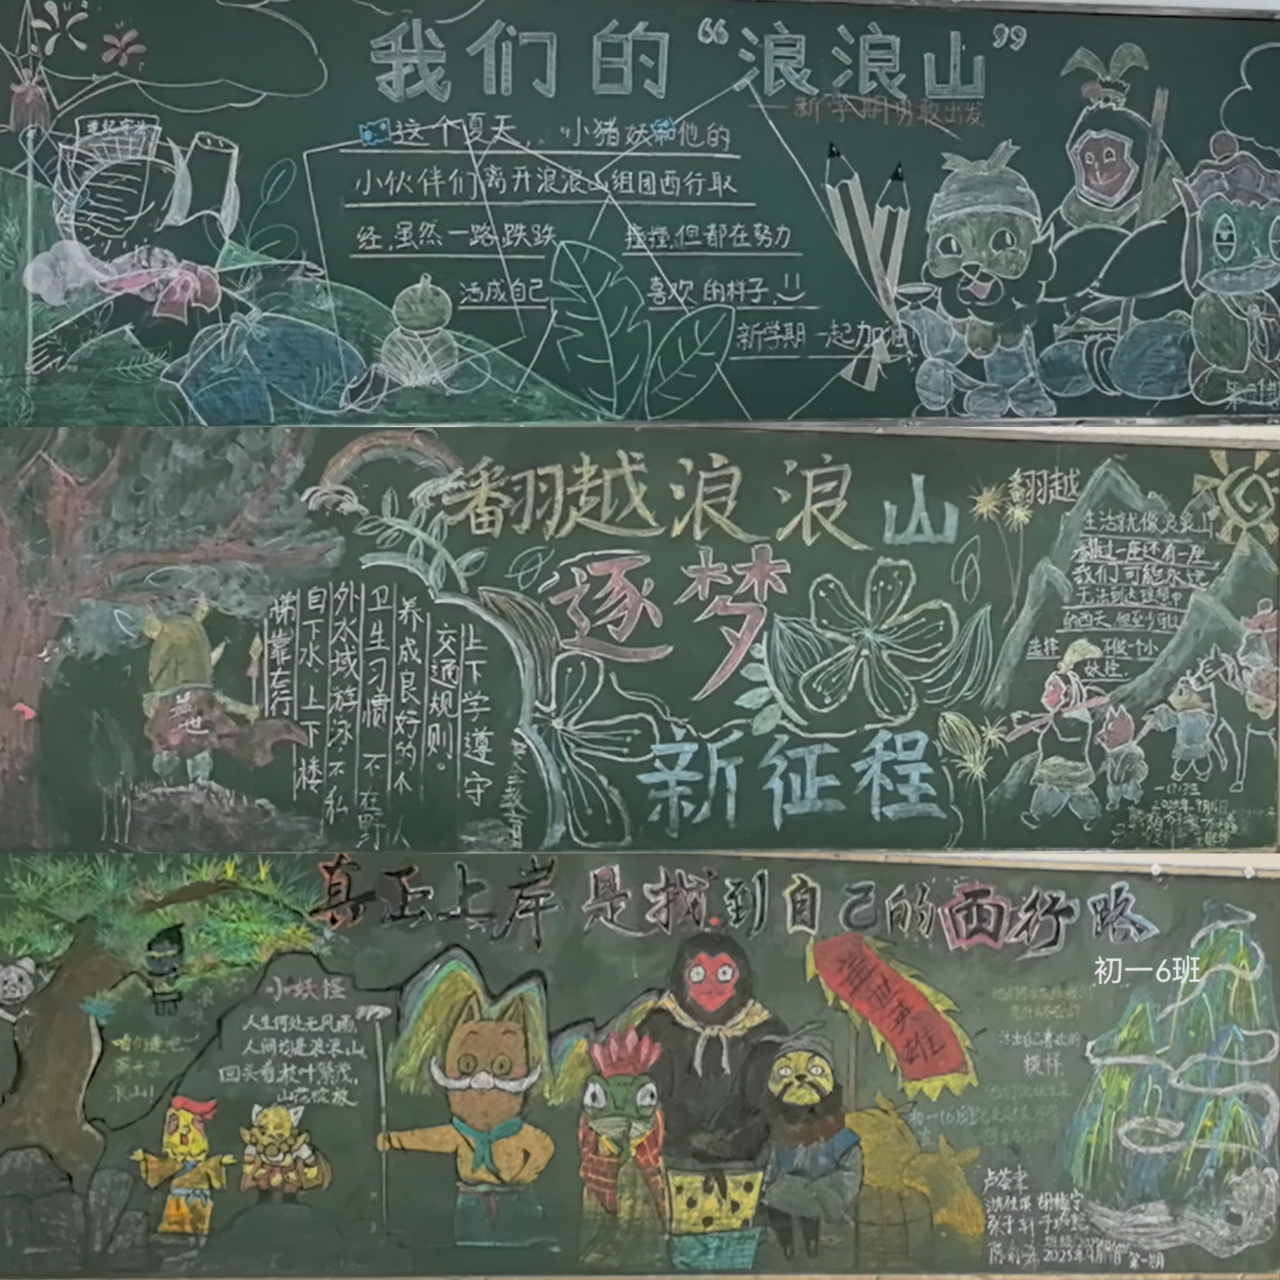 我们的“浪浪山”
——新学期勇敢出发
这个夏天,小猪妖和他的
小伙伴们离开浪浪山组团西行取
经,虽然一路跌跌撞撞,但都在努力
活成自己喜欢的样子.
新学期一起加油
翻越浪浪山
逐梦
新征程
上下学遵守
交通规则。
养成良好的个人
卫生习惯 不在野
外水域游泳不私
自下水 上下楼
梯靠右行
盖世
翻越
生活就像浪浪山
翻过一座还有一座
我们可能永远
无法到达理想中
的西天,但至少可以
选择 不做一个小
妖怪.
真正上岸是找到自己的西行路
初一6班
小妖怪
人生何处无风雨,
人间均是浪浪山,
回头看枝叶繁茂,
山花绽放
咱们走吧
离开浪
浪山!
盖世英雄
活出自己喜欢的
模样
初一(6)班
第一期